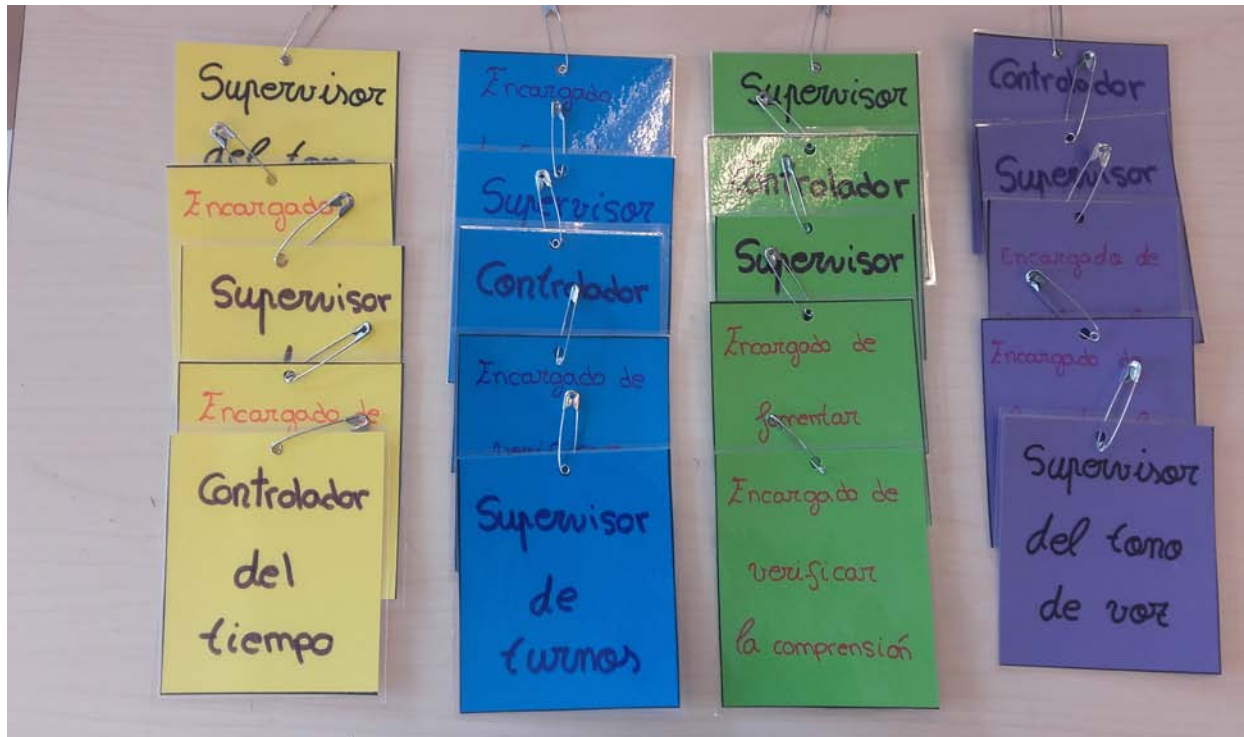 Supervisor
del tono
Encargado
Supervisor
Encargado de
Controlador
del
tiempo
Encargado
Supervisor
Controlador
Encargado de
verificar
Supervisor
de
turnos
Supervisor
Controlador
Supervisor
Encargado de
fomentar
Encargado de
verificar
la comprensión
Controlador
Supervisor
Encargado de
Encargado de
Supervisor
del tono
de voz